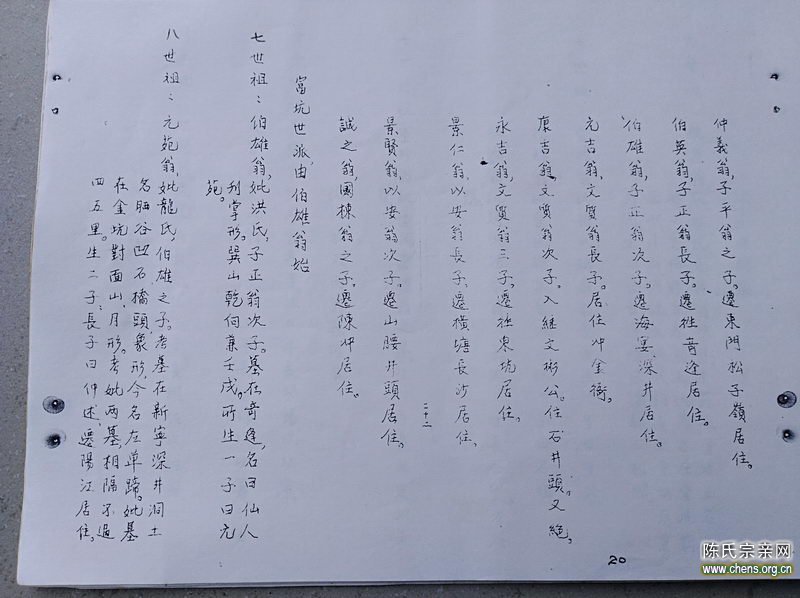 仲義翁,子平翁之子。遷東門松子嶺居住。
伯英翁,子正翁長子。遷徃竒逢居住。
伯雄翁,子正翁次子。遷海宴深井居住。
元吉翁,文質翁長子。居住冲金衕。
康吉翁,文質翁次子。入継文彬公。住石井頭。又絶。
永吉翁,文質翁三子。遷徃東坑居住。
景仁翁,以安翁長子,遷橫塘長沙居住。
二十二
景賢翁,以安翁次子。遷山腰井頭居住。
誠之翁,國棟翁之子。遷陳冲居住。
富坑世派,由伯雄翁始
七世祖:伯雄翁,妣洪氏,子正翁次子。墓在竒逢,名曰仙人
刋掌形。巽山乾向兼壬戌。所生一子曰元
苑。
八世祖:元苑翁,妣龍氏,伯雄之子。考墓在新寧深井洞土
名晒谷凹石橋頭,象形,今名左单蹄。妣墓
在金坑對面山,月形。考妣两墓相隔不過
四五里。生二子:長子曰仲述,遷陽江居住。
20
陈氏宗亲网
www.chens.org.cn